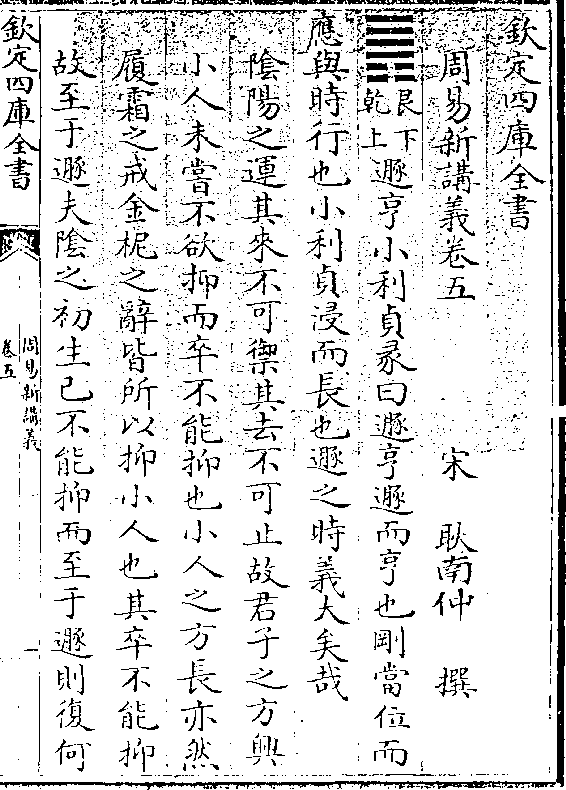 欽定四庫全書
周易新講義卷五
宋 耿南仲 撰
艮下
乾上
遯亨小利貞彖曰遯亨遯而亨也剛當位而
應與時行也小利貞浸而長也遯之時義大矣哉
陰陽之運其來不可禦其去不可止故君子之方興
小人未嘗不欲抑而卒不能抑也小人之方長亦然
履霜之戒金柅之辭皆所以抑小人也其卒不能抑
故至于遯夫陰之初生已不能抑而至于遯則復何
欽定四庫全書
周易新講義
卷五
一